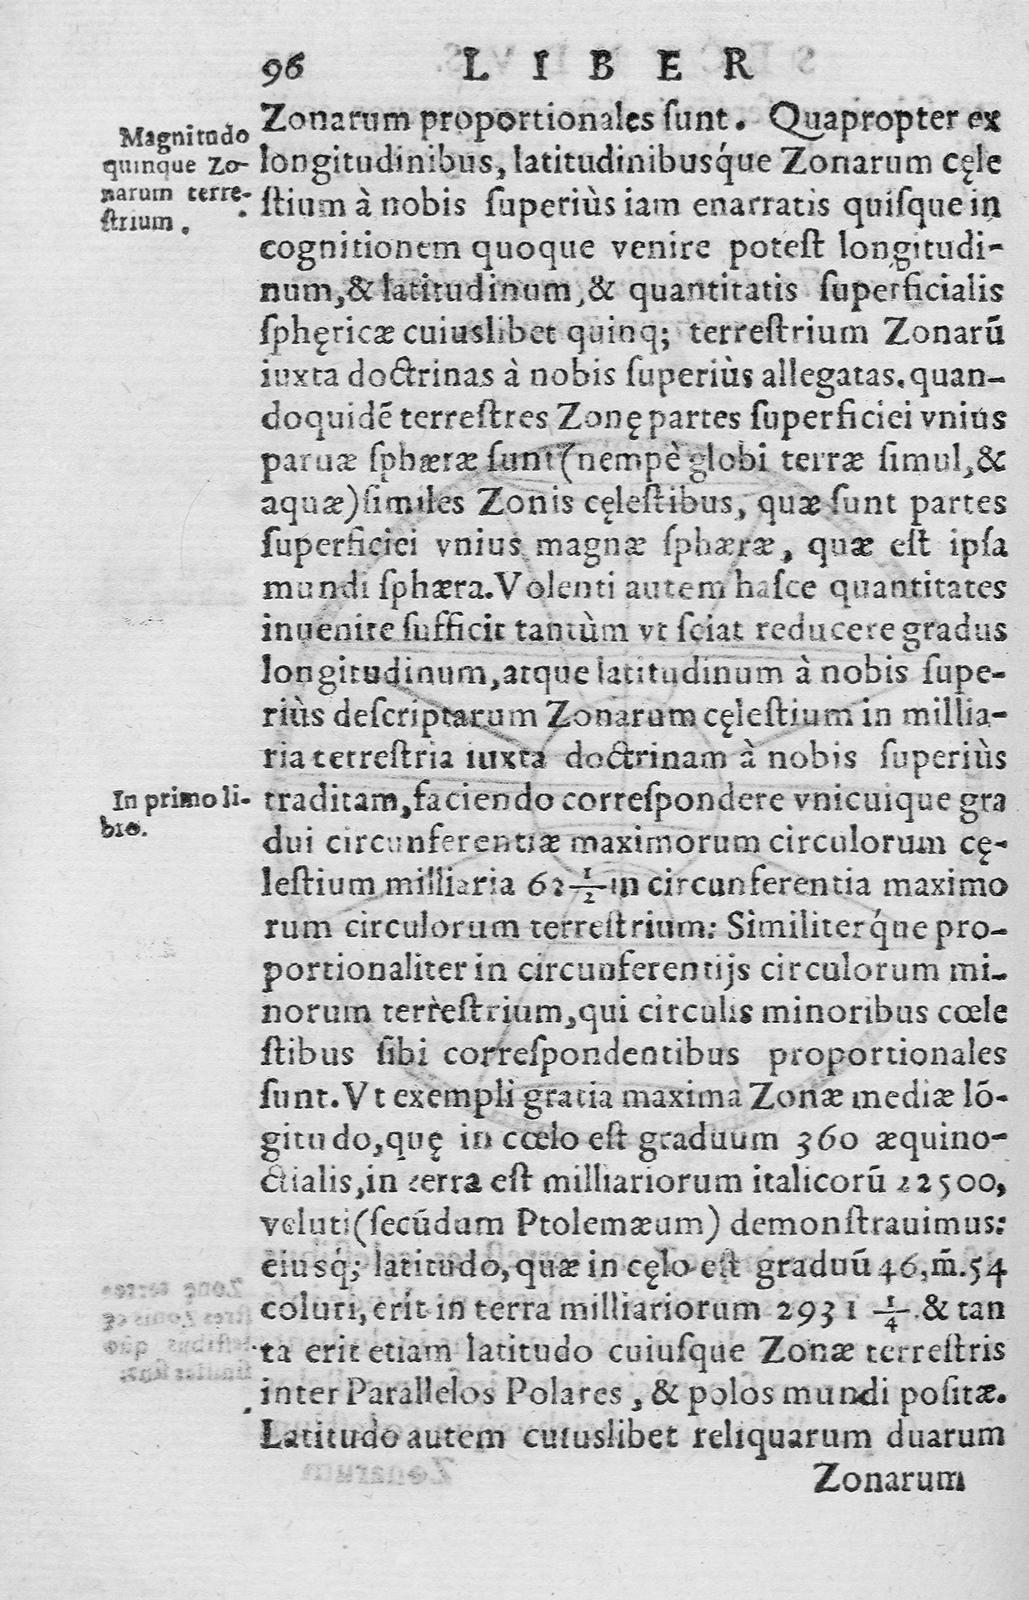 96 LIBER
Magnitudo
quinque Zo-
narum terre-
ſtrium.
Zonarum proportionales ſunt. Quapropter ex
longitudinibus, latitudinibusq́ue Zonarum cęle
ſtium à nobis ſuperiùs iam enarratis quiſque in
cognitionem quoque venire poteſt longitudi-
num, & latitudinum, & quantitatis ſuperficialis
ſphęricæ cuiuslibet quinq; terreſtrium Zonarū
iuxta doctrinas à nobis ſuperiùs allegatas. quan-
doquidē terreſtres Zonę partes ſuperficiei vnius
paruæ ſphæræ ſunt (nempè globi terræ ſimul, &
aquæ) ſimiles Zonis cęleſtibus, quæ ſunt partes
ſuperficiei vnius magnæ ſphæræ, quæ eſt ipſa
mundi ſphæra. Volenti autem haſce quantitates
inuenire ſufficit tantùm vt ſciat reducere gradus
longitudinum, atque latitudinum à nobis ſupe-
riùs deſcriptarum Zonarum cęleſtium in millia-
ria terreſtria iuxta doctrinam à nobis ſuperiùs
In primo li-
bro.
traditam, faciendo correſpondere vnicuique gra
dui circunferentiæ maximorum circulorum cę-
leſtium milliaria 62 1/2 in circunferentia maximo
rum circulorum terreſtrium: Similiterq́ue pro-
portionaliter in circunferentijs circulorum mi-
norum terreſtrium, qui circulis minoribus cœle
ſtibus ſibi correſpondentibus proportionales
ſunt. Vt exempli gratia maxima Zonæ mediæ lō-
gitudo, quę in cœlo eſt graduum 360 æquino-
ctialis, in terra eſt milliariorum italicorū 22500,
veluti (ſecūdum Ptolemæum) demonſtrauimus:
eiusq́; latitudo, quæ in cęlo eſt graduū 46, m̄. 54
coluri, erit in terra milliariorum 2931 1/4. & tan
ta erit etiam latitudo cuiuſque Zonæ terreſtris
inter Parallelos Polares, & polos mundi poſitæ.
Latitudo autem cuiuslibet reliquarum duarum
Zonarum